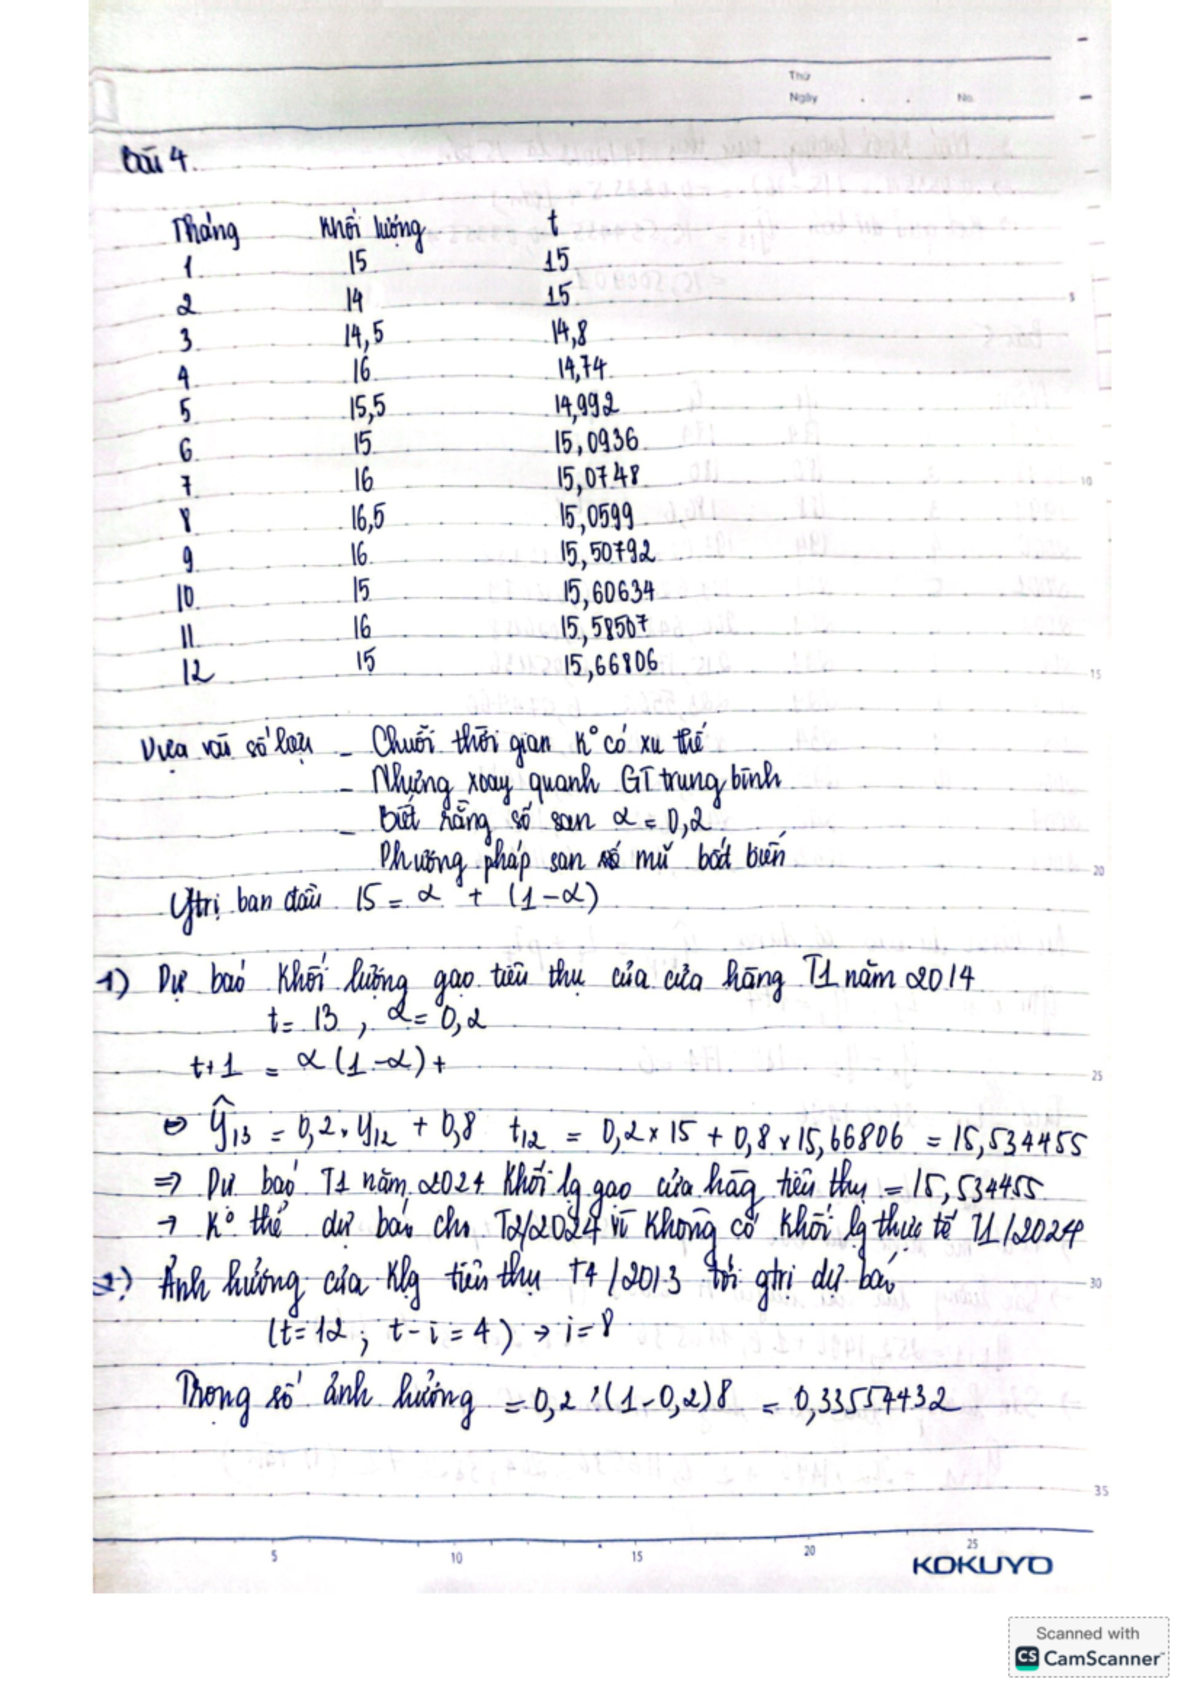 Thứ
Ngày . . No.
Bài 4.
Tháng Khối lượng t
1 15 15
2 14 15
3 14,5 14,8
4 16 14,74
5 15,5 14,992
6 15 15,0936
7 16 15,0748
8 16,5 15,0599
9 16 15,50792
10 15 15,60634
11 16 15,58507
12 15 15,66806
Dựa vào số liệu - Chuỗi thời gian K° có xu thế
- Nhưng xoay quanh GT trung bình
- Biết rằng số san α = 0,2
Phương pháp san số mũ bất biến
Gtrị ban đầu 15 = α + (1-α)
1) Dự báo khối lượng gạo tiêu thụ của cửa hàng T1 năm 2014
t = 13 , α = 0,2
t+1 = α (1-α) +
⇔ ŷ13 = 0,2 × y12 + 0,8 t12 = 0,2 × 15 + 0,8 × 15,66806 = 15,534455
⇒ Dự báo T1 năm 2024 khối lg gạo cửa hàg tiêu thụ = 15,534455
→ K° thể dự báo cho T2/2024 vì không có khối lg thực tế T1/2024
2) Ảnh hưởng của Klg tiêu thụ T4/2013 tới gtrị dự báo
(t = 12 ; t - i = 4) → i = 8
Trọng số ảnh hưởng = 0,2 × (1-0,2)8 = 0,33554432
5 10 15 20 25
5
10
15
20
25
30
35
KOKUYO
Scanned with
CS CamScanner